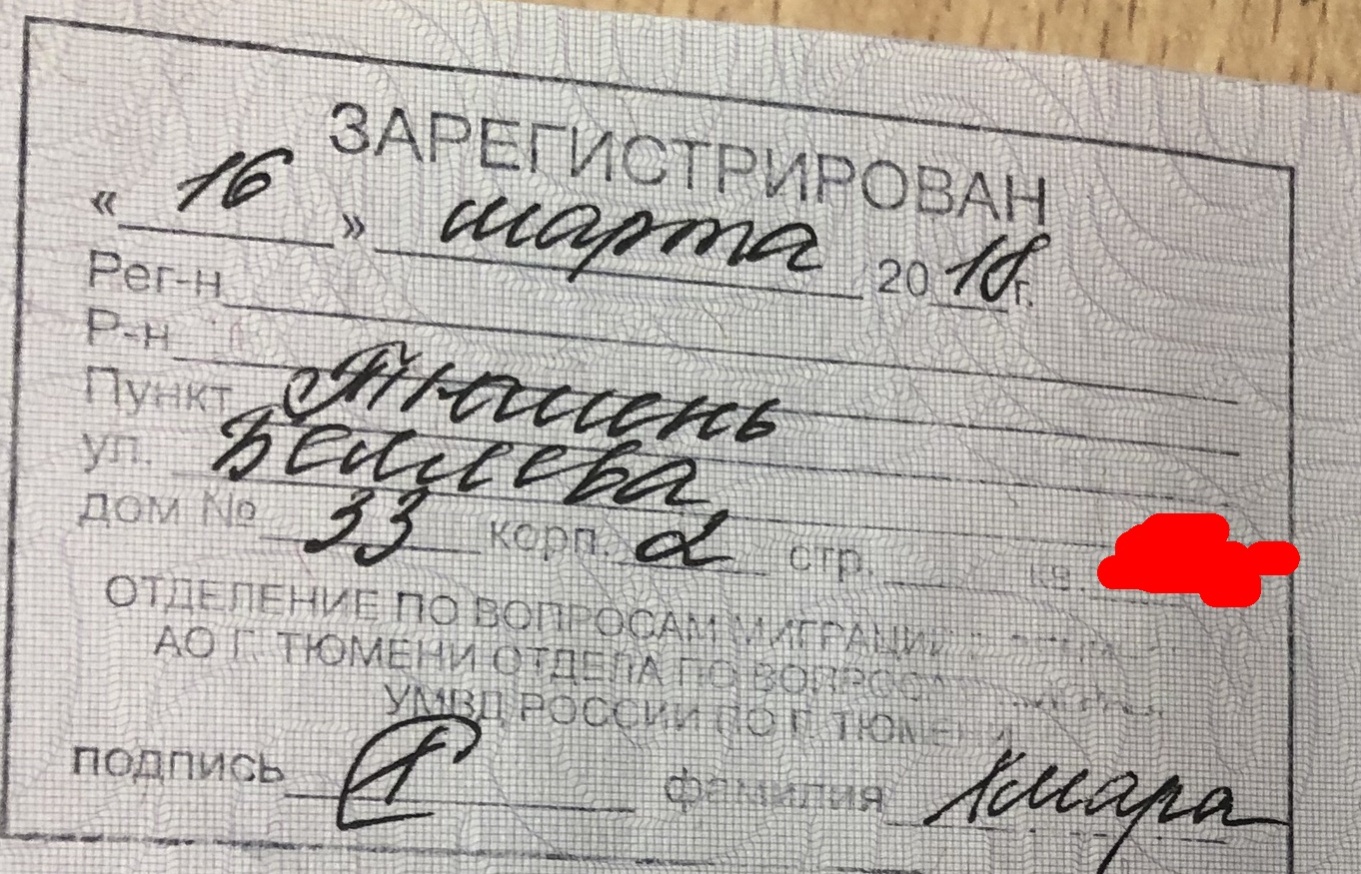 ЗАРЕГИСТРИРОВАН
« 16 » марта 20 18 г.
Рег-н
Р-н
Пункт Тюмень
ул. Беляева
дом № 33 корп. 2 стр. кв.
ОТДЕЛЕНИЕ ПО ВОПРОСАМ МИГРАЦИИ
АО Г. ТЮМЕНИ ОТДЕЛА ПО ВОПРОСА
УМВД РОССИИ ПО Г. ТЮМЕНИ
подпись фамилия Хмара